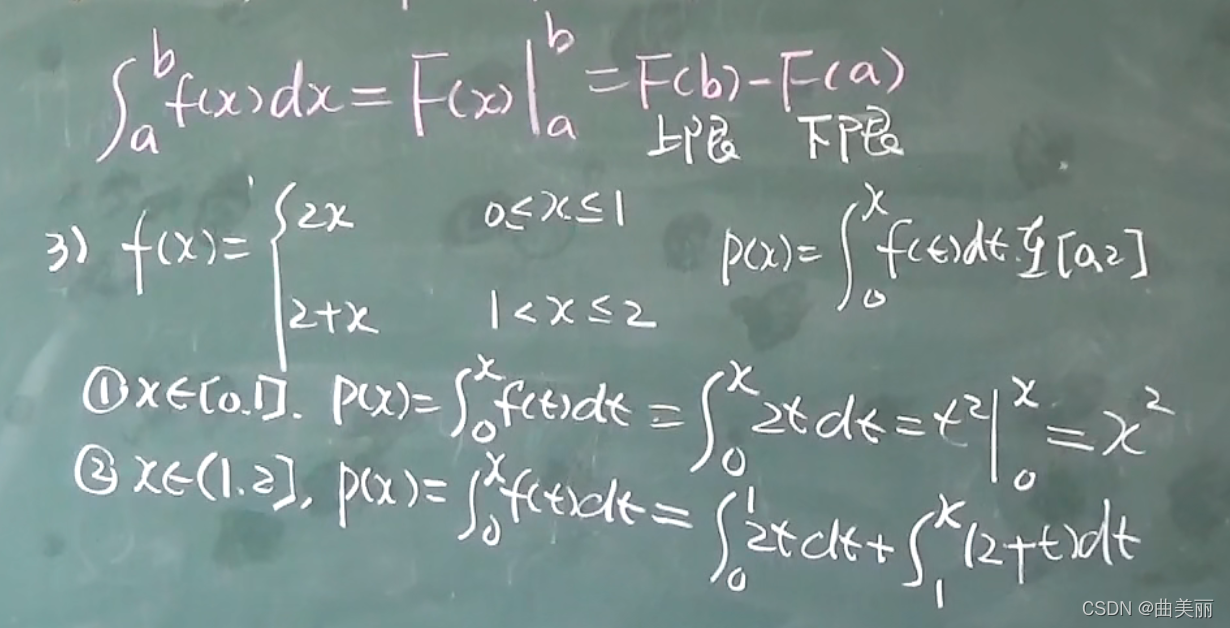 ∫_a^b f(x)dx = F(x)|_a^b = F(b)-F(a)
上限 下限
3) f(x)= { 2x 0≤x≤1 p(x)=∫_0^x f(t)dt.在[0,2]
2+x 1<x≤2
① x∈[0.1]. p(x)=∫_0^x f(t)dt=∫_0^x 2t dt=t²|_0^x=x²
② x∈(1.2], p(x)=∫_0^x f(t)dt=∫_0^1 2t dt+∫_1^x (2+t)dt
CSDN @曲美丽